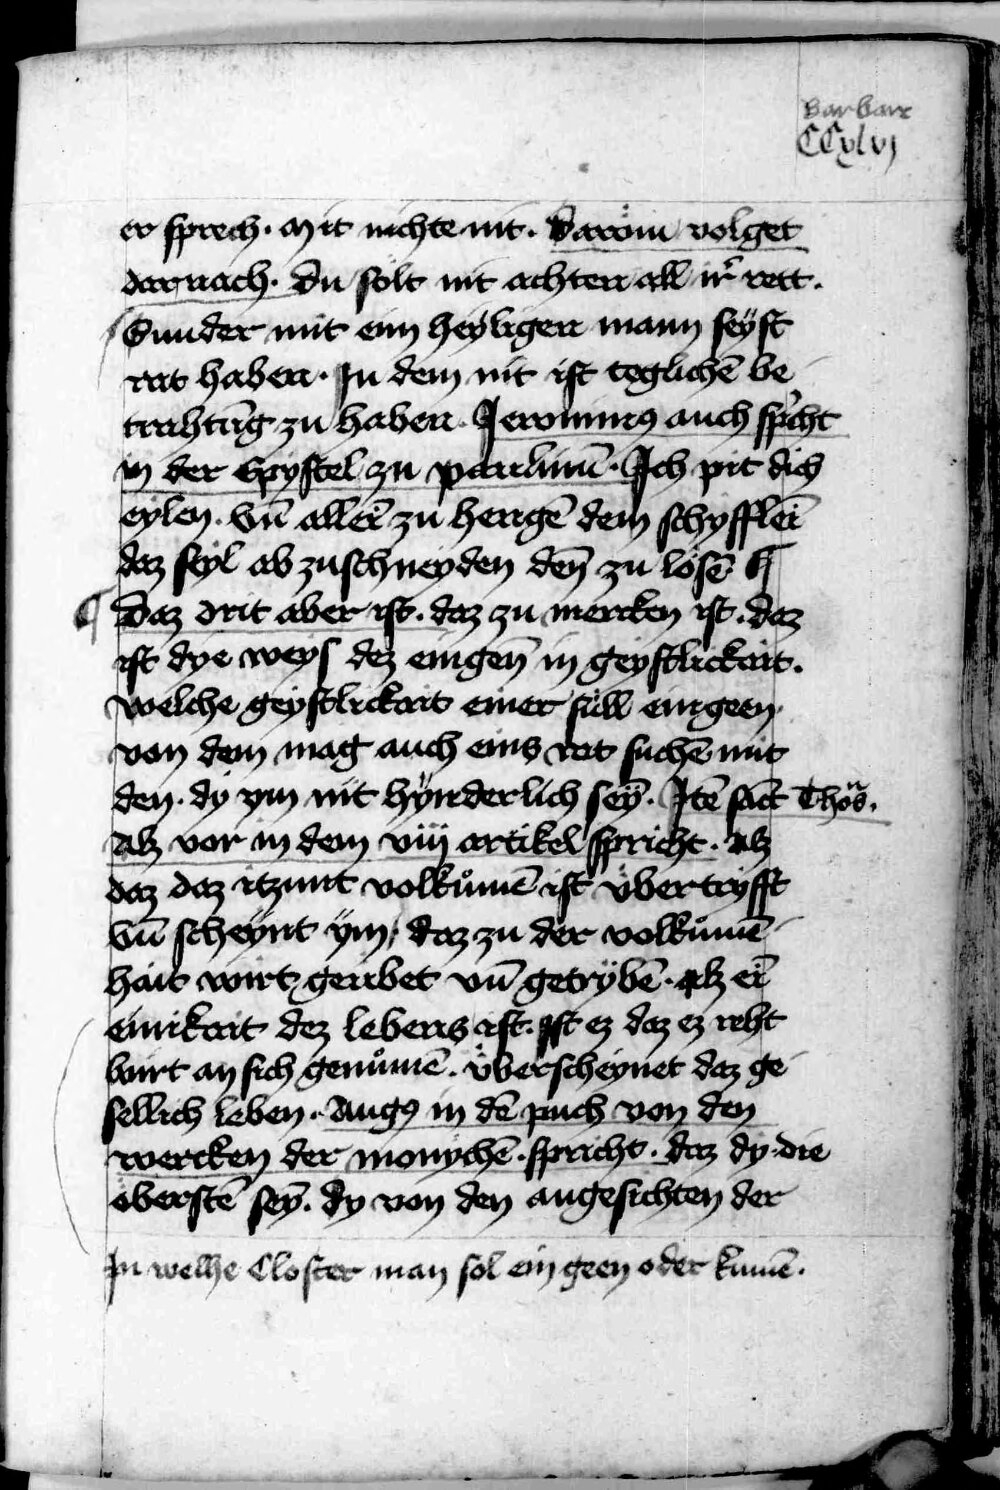 barbare
CCxlvj
er sprech. Mit nichte nit. Daröm volget
darnach. Du sölt nit achten all ir rett.
Sunder mit eim heyligen mann seyst
rat haben. In dem nit ist teglichē be
trahtūg zu haben. Jeronimus auch spricht
in der Epystel zu paulinū. Ich pit dich
eylen. vn̄ allei᷑ zu hengē dem schyfflei᷑
daz seyl ab zuschneyden den̄ zu lösē
Daz drit aber ist. daz zu mercken ist. Daz
ist dye weys dez eingen̄ in geystlickait.
welche geystlickait einer süll eingeen
von dem mag auch eins rat suchen mit
den. dy ym nit hÿnderlich sey. Itē sāct Thōs.
Alz vor in dem viij artikel spricht. Alz
daz daz itzunt volkůmē ist übertryfft
vn̄ scheynt ÿm, daz zu der volkůmē
hait wirt geübet vn̄ getrÿbē. Alz ei᷑
einikait dez lebens ist. Ist ez daz ez reht
wirt an sich genůmē. überscheynet daz ge
sellich leben. Augꝰ in dē puch von den
wercken der mönychē. spricht. Daz dy die
öberstē sey. dy von den angesichten der
In welhe Closter man sol ein geen oder kumē.